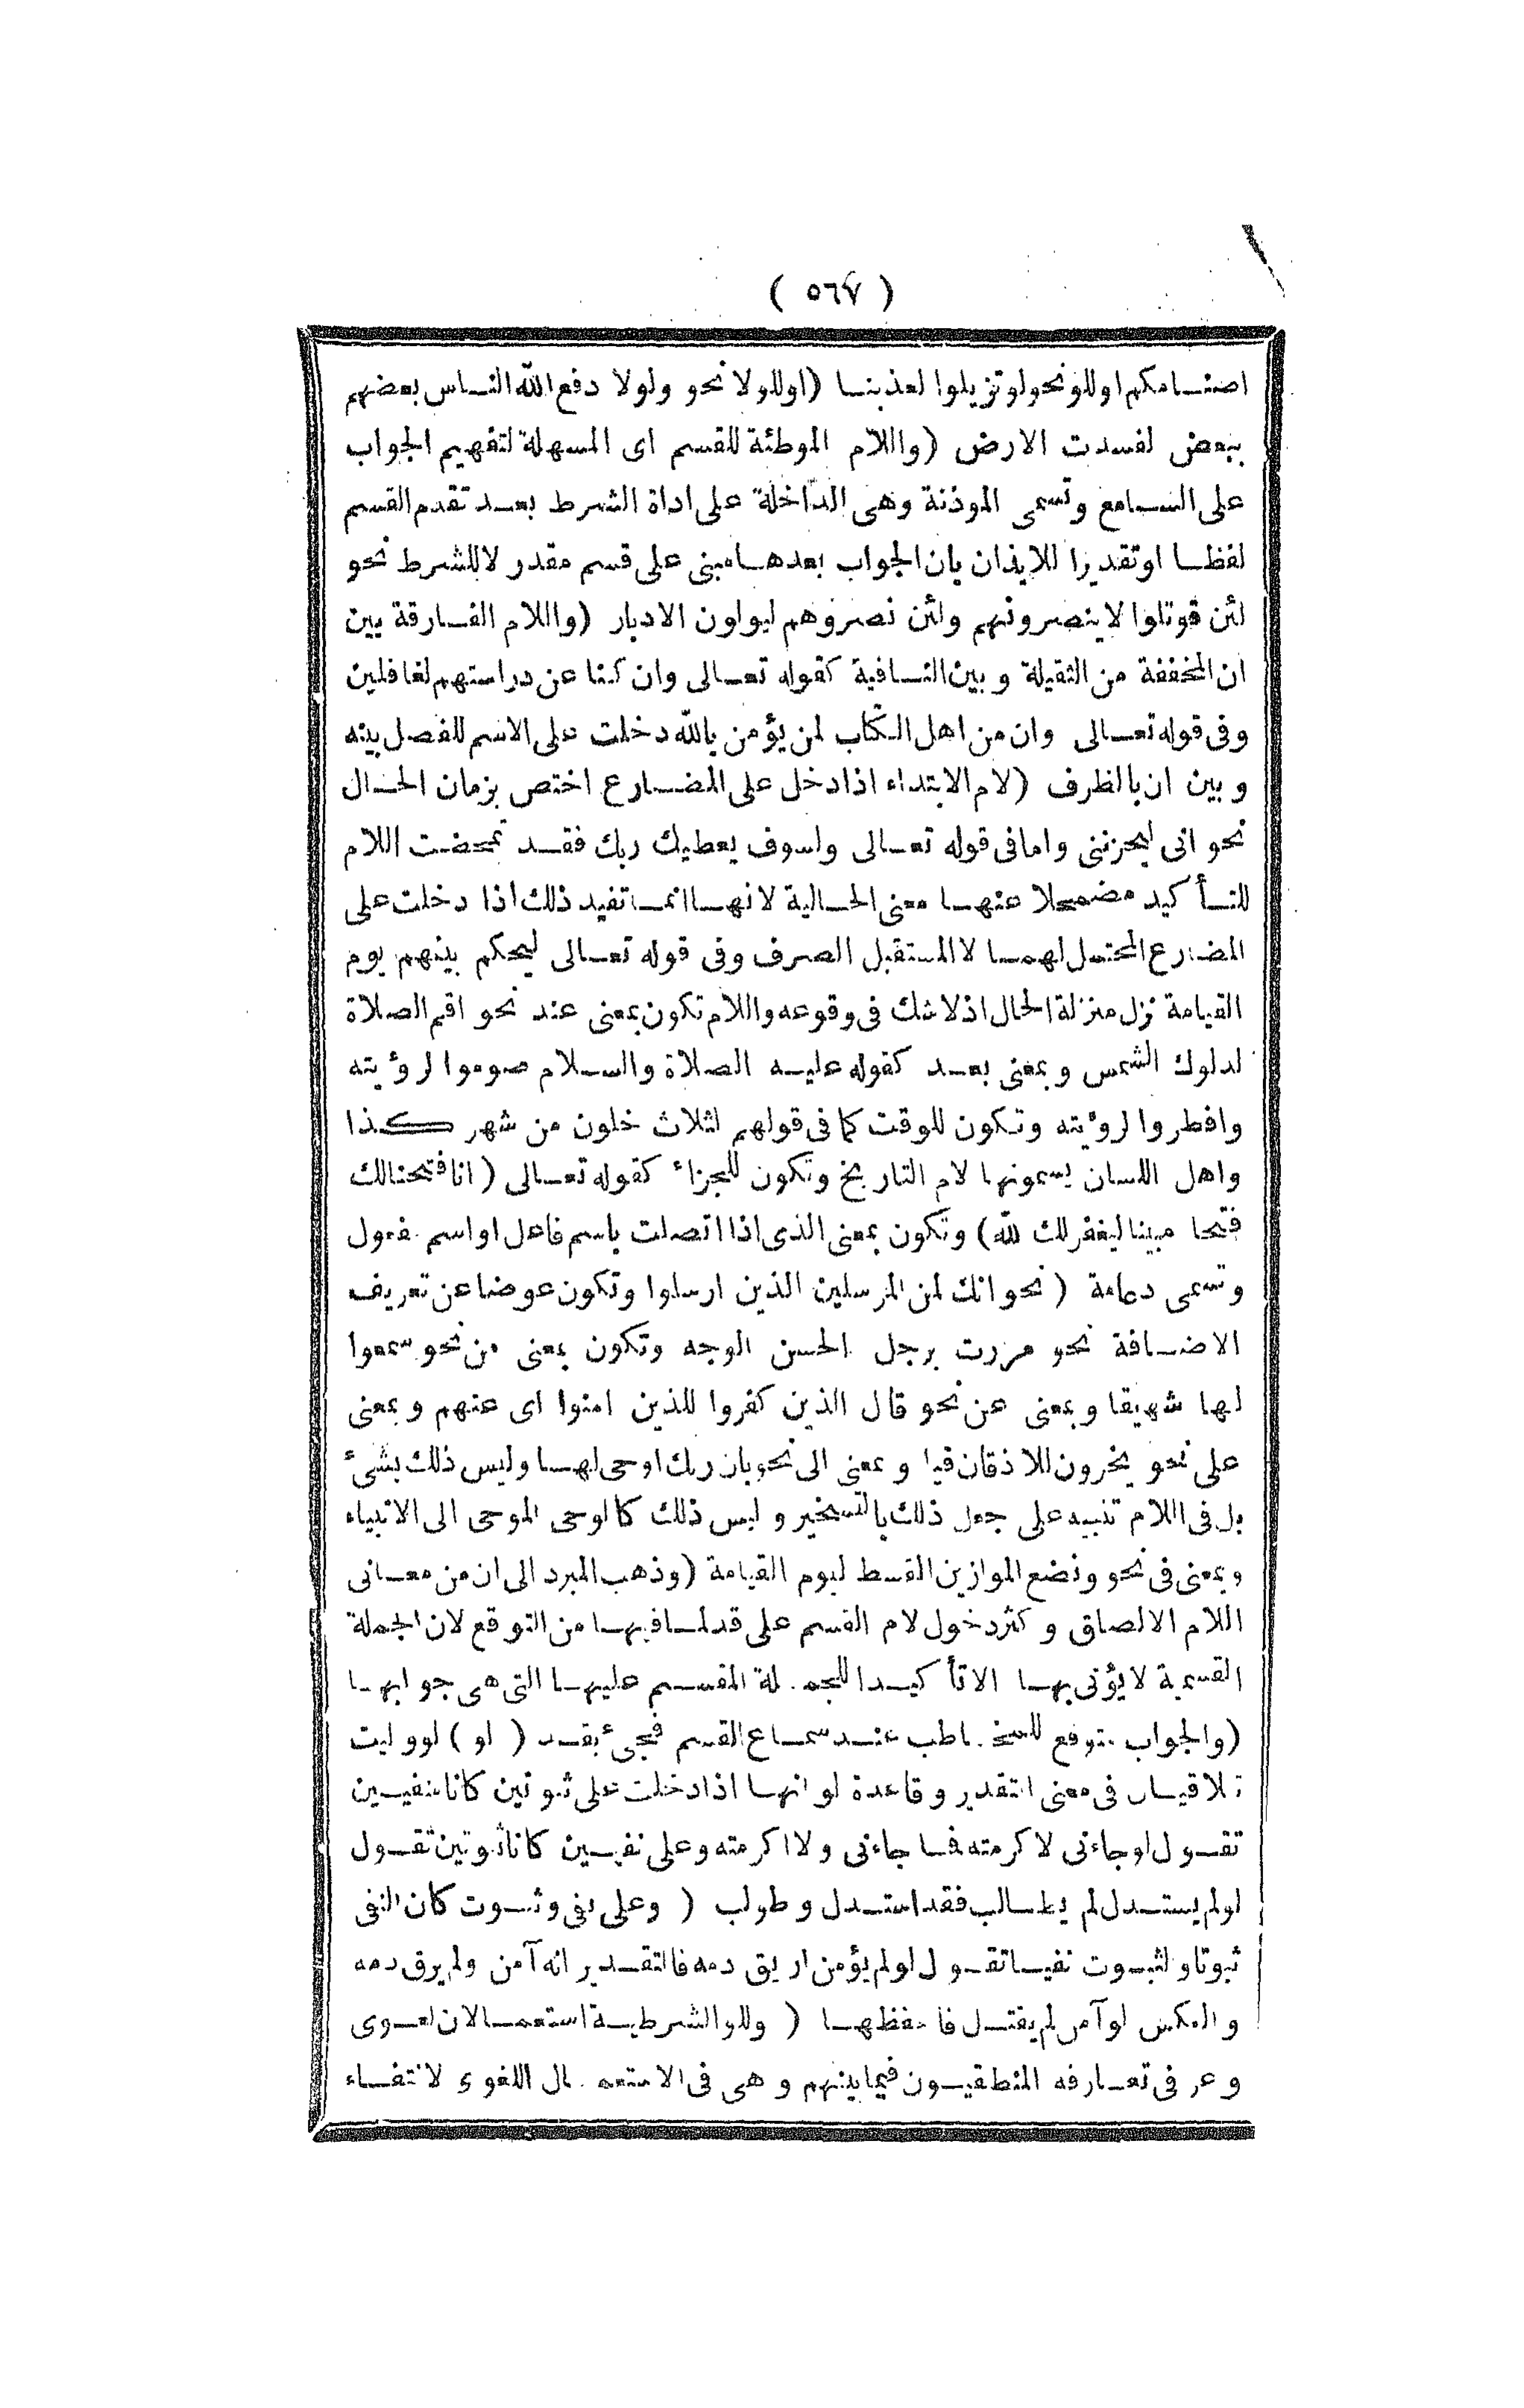 ( ٥٦٧ )
اصنامكم اوللو نحو لو تزيلوا لعذبنا (اوللولا نحو ولولا دفع الله الناس بعضهم
ببعض لفسدت الارض (واللام الموطئة للقسم اى المسهلة لتفهيم الجواب
على السامع وتسمى الموذنة وهى الداخلة على اداة الشرط بعد تقدم القسم
لفظا اوتقديرا للايذان بان الجواب بعدها مبنى على قسم مقدر لاللشرط نحو
لئن قوتلوا لاينصرونهم ولئن نصروهم ليولون الادبار (واللام الفارقة بين
ان المخففة من الثقيلة وبين النافية كقوله تعالى وان كنا عن دراستهم لغافلين
وفى قوله تعالى وان من اهل الكتاب لمن يؤمن بالله دخلت على الاسم للفصل بينه
وبين ان بالظرف (لام الابتداء اذا دخل على المضارع اختص بزمان الحال
نحو انى ليحزننى واما فى قوله تعالى ولسوف يعطيك ربك فقد تمحضت اللام
للتأكيد مضمحلا عنها معنى الحالية لانها انما تفيد ذلك اذا دخلت على
المضارع المحتمل لهما لا المستقبل الصرف وفى قوله تعالى ليحكم بينهم يوم
القيامة نزل منزلة الحال اذلا شك فى وقوعه واللام تكون بمعنى عند نحو اقم الصلاة
لدلوك الشمس وبمعنى بعد كقوله عليه الصلاة والسلام صوموا لرؤيته
وافطروا لرؤيته وتكون للوقت كما فى قولهم لثلاث خلون من شهر كذا
واهل اللسان يسمونها لام التاريخ وتكون للجزاء كقوله تعالى (انا فتحنالك
فتحا مبينا ليغفرلك الله) وتكون بمعنى الذى اذا اتصلت باسم فاعل او اسم مفعول
وتسمى دعامة (نحو انك لمن المرسلين الذين ارسلوا وتكون عوضا عن تعريف
الاضافة نحو مررت برجل الحسن الوجه وتكون بمعنى من نحو سمعوا
لها شهيقا وبمعنى عن نحو قال الذين كفروا للذين امنوا اى عنهم وبمعنى
على نحو يخرون للاذقان وبمعنى الى نحو بان ربك اوحى لها وليس ذلك بشئ
بل فى اللام تنبيه على جعل ذلك بالتسخير وليس ذلك كالوحى الموحى الى الانبياء
وبمعنى فى نحو ونضع الموازين القسط ليوم القيامة (وذهب المبرد الى ان من معانى
اللام الالصاق وكثر دخول لام القسم على قد لما فيها من التوقع لان الجملة
القسمية لايؤتى بها الا تأكيدا للجملة المقسم عليها التى هى جوابها
(والجواب متوقع للمخاطب عند سماع القسم فجئ بقد ( لو ) لو وليت
تلاقيان فى معنى التقدير وقاعدة لو انها اذا دخلت على ثبوتين كانا منفيين
تقول لوجاءنى لاكرمته فما جاءنى ولا اكرمته وعلى نفيين كانا ثبوتين تقول
لولم يستدل لم يطالب فقد استدل وطولب ( وعلى نفى وثبوت كان النفى
ثبوتا والثبوت نفيا تقول لولم يؤمن اريق دمه فالتقدير انه آمن ولم يرق دمه
والعكس لو آمن لم يقتل فاحفظها ( وللو الشرطية استعمالان لغوى
وعرفى تعارفه المنطقيون فيما بينهم وهى فى الاستعمال اللغوى لانتفاء